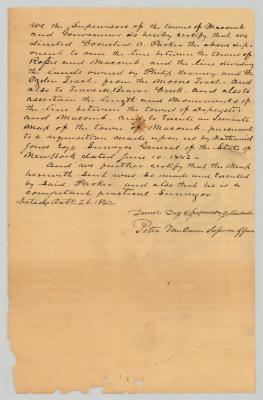 We the Supervisors of the towns of Macomb
and Gouverneur do hereby certify that we
directed Cornelius A. Parker the above deponent
to run the line between the towns of
Rossie and Macomb, and the line dividing
the lands owned by Philip Kearney and the
Ogden Tract, from the Moons Tract and
also to Traverse Beaver Creek, and also to
ascertain the length and Monuments of
the line between the towns of Depeyster
and Macomb, and to Execute an accurate
Map of the town of Macomb, pursuant
to a requisition made upon us by Nathaniel
Jones Esqr Surveyor General of the State of
New York dated June 10. 1842.
And we further certify that the Map
herewith Sent was So made and Executed
by Said Parker, and also that he is a
competent practical Surveyor
Dated Octr 26. 1842
David Day Supervisor of Macomb
Peter Van Buren Supervisor